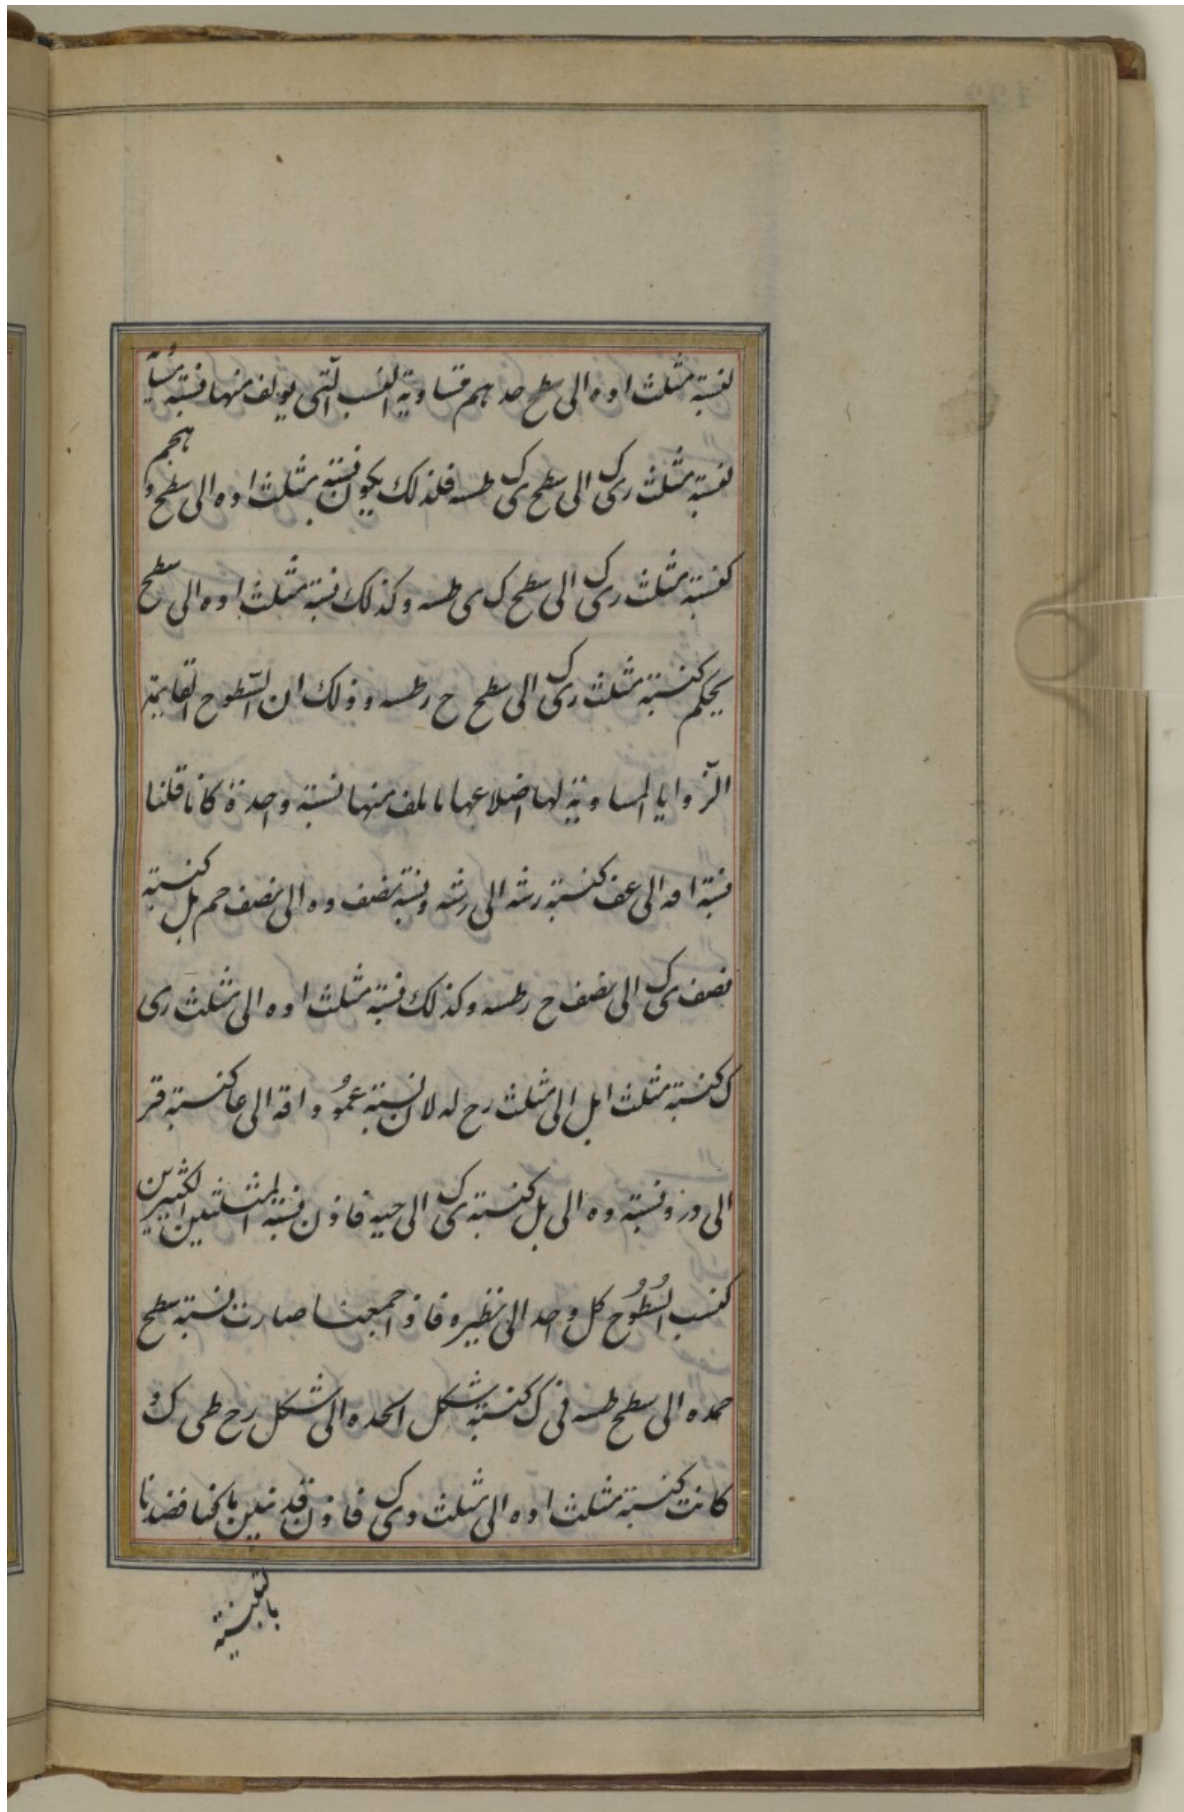 لنسبة مثلث اوه الى سطح حد هم متساوية النسب التى يولف منها فنسبة
نسبة مثلث رى ك الى سطح ى ك طسه فلذلك يكون نسبة مثلث اوه الى سطح و هجم
كنسبة مثلث رى ك الى سطح ك ى طسه وكذلك نسبة مثلث اوه الى سطح
يحكم كنسبة مثلث رى ك الى سطح ح رطسه وذلك ان السطوح القايمة
الزوايا المساوية لها اضلاعها ياتلف منها نسبة واحدة كانا قلنا
نسبة اقه الى عف كنسبة رشه الى رشه ونسبة نصف وه الى نصف حم بل كنسبة
نصف ى ك الى نصف ح رطسه وكذلك نسبة مثلث اوه الى مثلث رى
ك كنسبة مثلث ابل الى مثلث رح له لان نسبة عمود اقه الى عا كنسبة قر
الى در ونسبة وه الى بل كنسبة ى ك الى حيه فاذن نسبة المثلثين الكثيرين
كنسب السطوح كل واحد الى نظيره فاذا جمعنا صارت نسبة سطح
حمده الى سطح طسه فى ك كنسبة شكل الحده الى شكل رح طى ك و
كانت كنسبة مثلث اوه الى مثلث وى ك فاذن قد تبين ما كنا قصدنا
بالنسبة